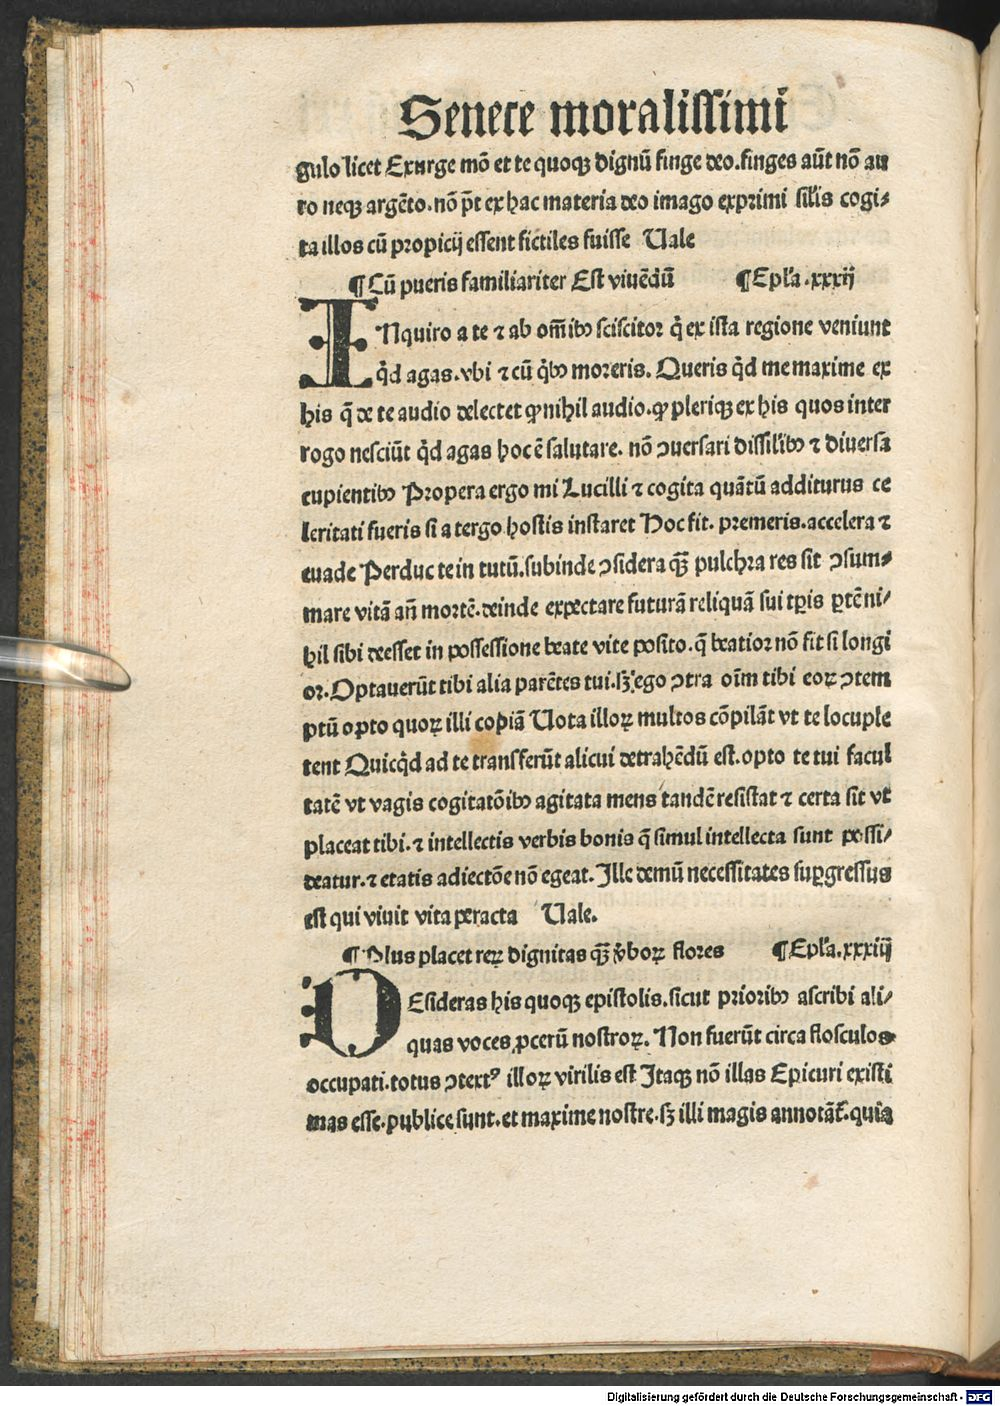 Senece moralissimi
gulo licet Exurge mō et te quoqȝ dignū finge deo.finges aūt nō au
ro neqȝ argēto.nō p̄t ex hac materia deo imago exprimi sil̄is cogi/
ta illos cū propicij essent fictiles fuisse Uale
¶ Cū pueris familiariter Est viuēdū ¶ Epl̄a.xxxij
INquiro a te ⁊ ab om̄ibꝰ sciscitor q̄ ex ista regione veniunt
qͥd agas.vbi ⁊ cū qͥbꝰ moreris. Queris qͥd me maxime ex
his q̄ de te audio delectet ꝙ nihil audio.ꝙ pleriqȝ ex his quos inter
rogo nesciūt qͥd agas hoc ē salutare. nō ↄuersari dissil̄ibꝰ ⁊ diuersa
cupientibꝰ Propera ergo mi Lucilli ⁊ cogita quātū additurus ce
leritati fueris si a tergo hostis instaret Hoc fit. premeris.accelera ⁊
euade Perduc te in tutū.subinde ↄsidera qȝ̄ pulchra res sit ↄsum/
mare vitā an̄ mortē.deinde expectare futurā reliquā sui tꝑis ꝑtē ni/
hil sibi deesset in possessione beate vite posito.q̄ beatior nō fit si longi
or.Optauerūt tibi alia parētes tui.sȝ ego ↄtra oīm tibi eoꝝ ↄtem
ptū opto quoꝝ illi copiā Uota illoꝝ multos cōpilāt vt te locuple
tent Quicqͥd ad te transferūt alicui detrahēdū est.opto te tui facul
tatē vt vagis cogitatōibꝰ agitata mens tandē resistat ⁊ certa sit vt
placeat tibi.⁊ intellectis verbis bonis q̄ simul intellecta sunt possi/
deatur.⁊ etatis adiectōe nō egeat.Ille demū necessitates suꝑgressus
est qui viuit vita peracta Uale.
¶ Plus placet reꝝ dignitas qȝ̄ v̓boꝝ flores ¶ Epl̄a.xxxiij
DEsideras his quoqȝ epistolis.sicut prioribꝰ ascribi ali/
quas voces ꝓcerū nostroꝝ. Non fuerūt circa flosculos
occupati.totus ↄtextꝰ illoꝝ virilis est Itaqȝ nō illas Epicuri existi
mas esse.publice sunt.et maxime nostre.sȝ illi magis annotāt̄.quia
Digitalisierung gefördert durch die Deutsche Forschungsgemeinschaft - DFG